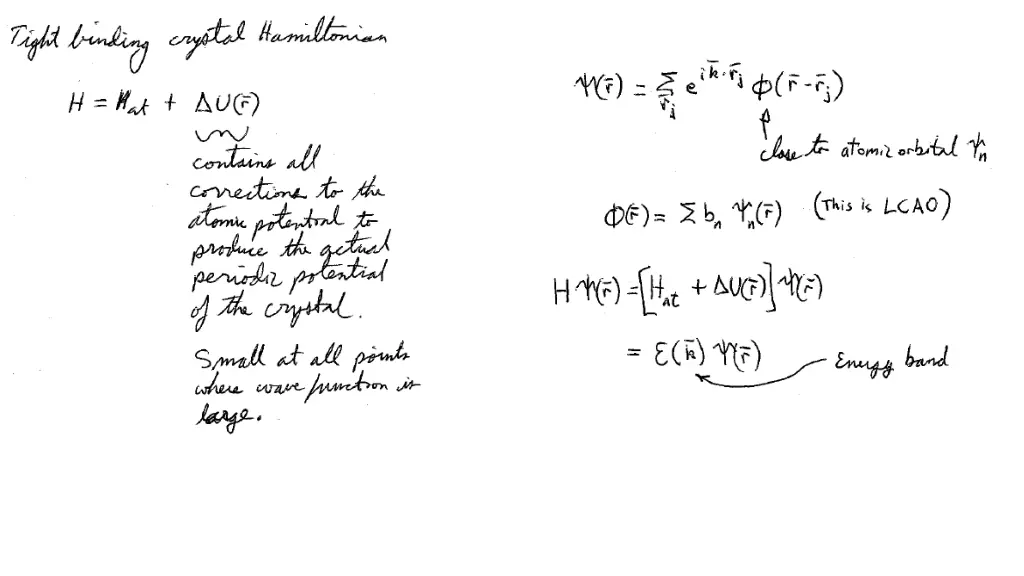 Tight binding crystal Hamiltonian
H = H_at + ΔU(r̄)
contains all
corrections to the
atomic potential to
produce the actual
periodic potential
of the crystal.
Small at all points
where wave function is
large.
Ψ(r̄) = Σ_r̄j e^{i k̄·r̄j} ϕ(r̄-r̄j)
close to atomic orbital Ψn
Φ(r̄) = Σ bn Ψn(r̄) (This is LCAO)
H Ψ(r̄) = [H_at + ΔU(r̄)] Ψ(r̄)
= ε(k̄) Ψ(r̄) Energy band